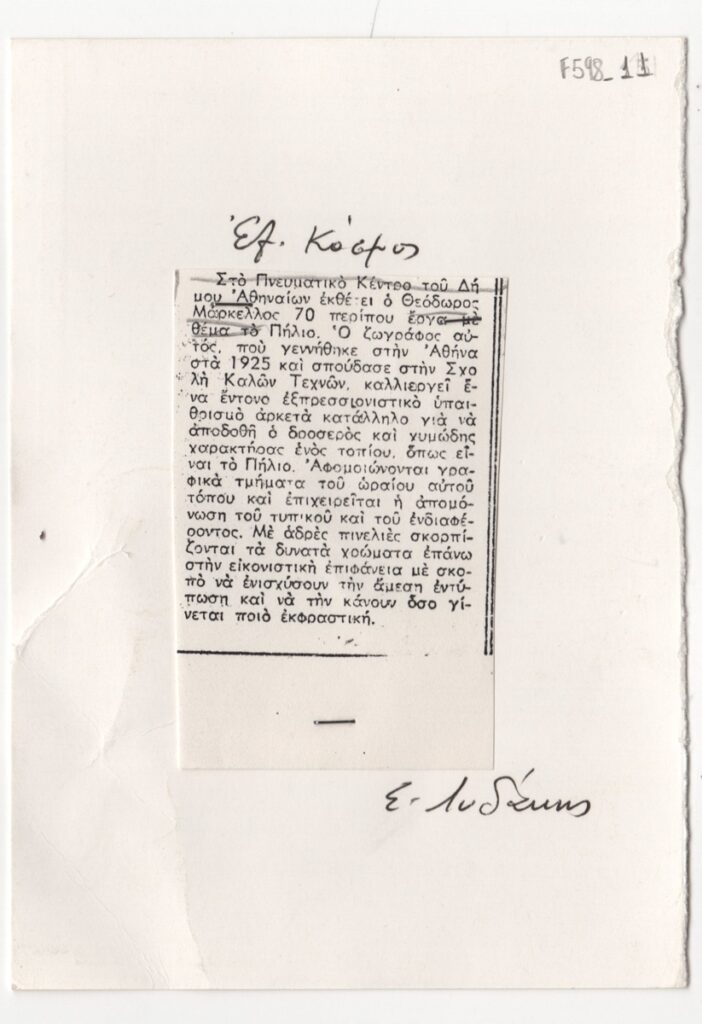 F598_11
Ἐλ. Κόσμος
Στὸ Πνευματικὸ Κέντρο τοῦ Δή
μου Ἀθηναίων ἐκθέτει ὁ Θεόδωρος
Μάρκελλος 70 περίπου ἔργα μὲ
θέμα τὸ Πήλιο. Ὁ ζωγράφος αὐ-
τός, ποὺ γεννήθηκε στὴν Ἀθήνα
στὰ 1925 καὶ σπούδασε στὴν Σχο
λὴ Καλῶν Τεχνῶν, καλλιεργεῖ ἕ-
να ἔντονο ἐξπρεσσιονιστικὸ ὑπαι-
θρισμὸ ἀρκετὰ κατάλληλο γιὰ νὰ
ἀποδοθῆ ὁ δροσερὸς καὶ χυμώδης
χαρακτήρας ἑνὸς τοπίου, ὅπως εἶ-
ναι τὸ Πήλιο. Ἀφομοιώνονται γρα-
φικὰ τμήματα τοῦ ὡραίου αὐτοῦ
τόπου καὶ ἐπιχειρεῖται ἡ ἀπομό-
νωση τοῦ τυπικοῦ καὶ τοῦ ἐνδιαφέ-
ροντος. Μὲ ἁδρὲς πινελιὲς σκορπί-
ζονται τὰ δυνατὰ χρώματα ἐπάνω
στὴν εἰκονιστικὴ ἐπιφάνεια μὲ σκο-
πὸ νὰ ἐνισχύσουν τὴν ἄμεση ἐντύ-
πωση καὶ νὰ τὴν κάνουν ὅσο γί-
νεται ποιὸ ἐκφραστική.
Σ. Λυδάκης